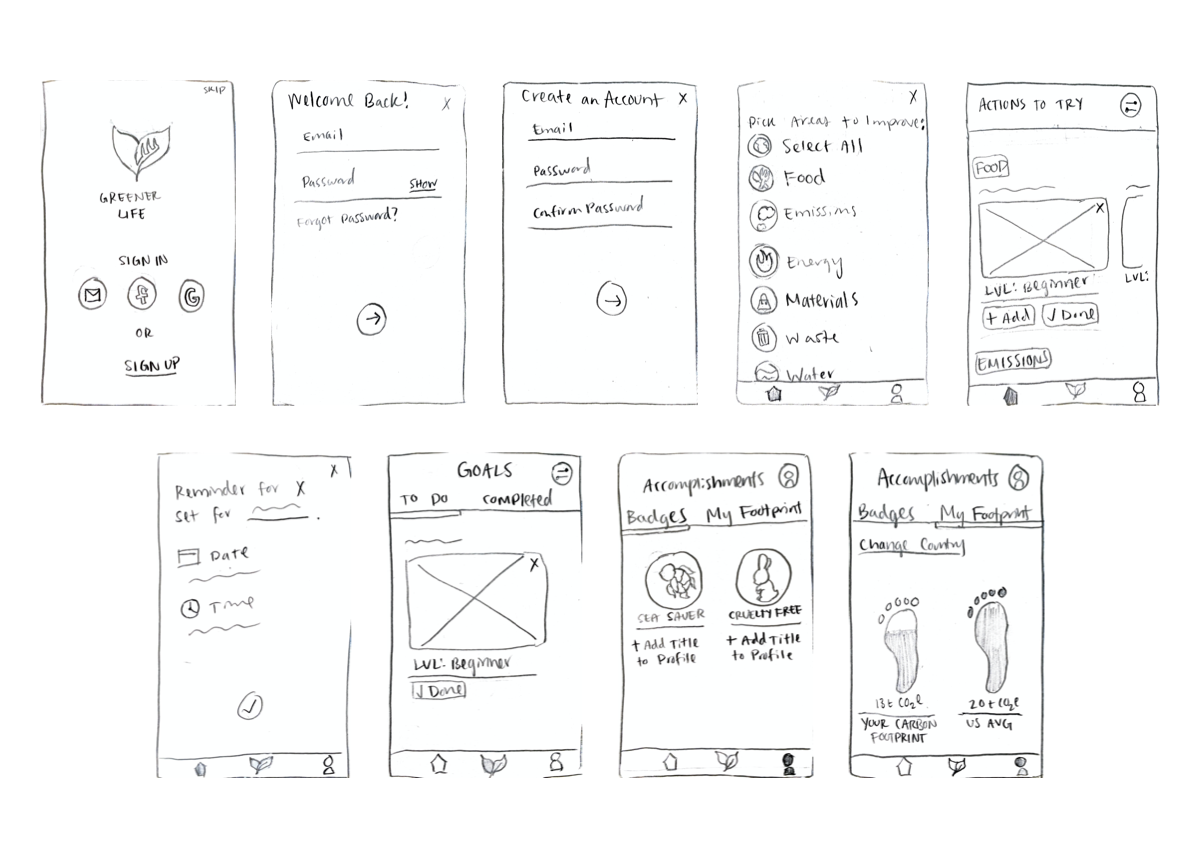 SKIP
GREENER
LIFE
SIGN IN
G
OR
SIGN UP
Welcome Back!
X
Email
Password
SHOW
Forgot Password?
Create an Account
X
Email
Password
Confirm Password
X
Pick Areas to Improve:
Select All
Food
Emissions
Energy
Materials
Waste
Water
ACTIONS TO TRY
FOOD
X
LVL: Beginner
LVL:
+ Add
✓ Done
EMISSIONS
X
Reminder for X
set for
.
Date
Time
GOALS
TO DO
COMPLETED
X
LVL: Beginner
✓ Done
Accomplishments
Badges
My Footprint
SEA SAVER
CRUELTY FREE
+ Add Title
to Profile
+ Add Title
to Profile
Accomplishments
Badges
My Footprint
Change Country
13t CO2e
YOUR CARBON
FOOTPRINT
20t CO2e
US AVG